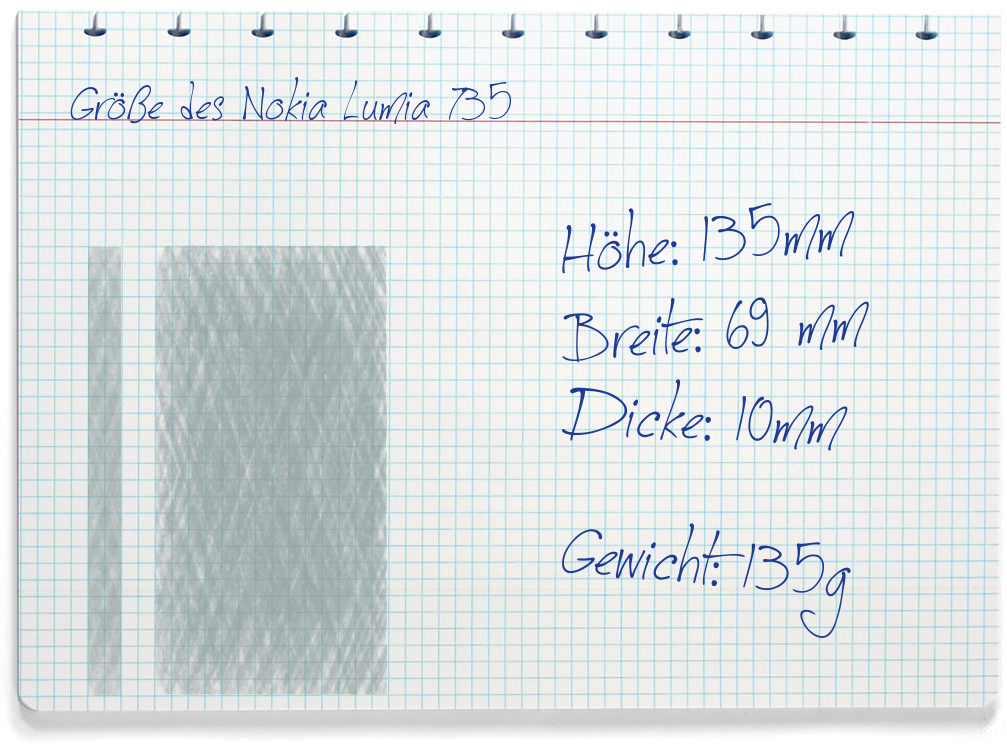 Größe des Nokia Lumia 735
Höhe: 135mm
Breite: 69 mm
Dicke: 10mm
Gewicht: 135g